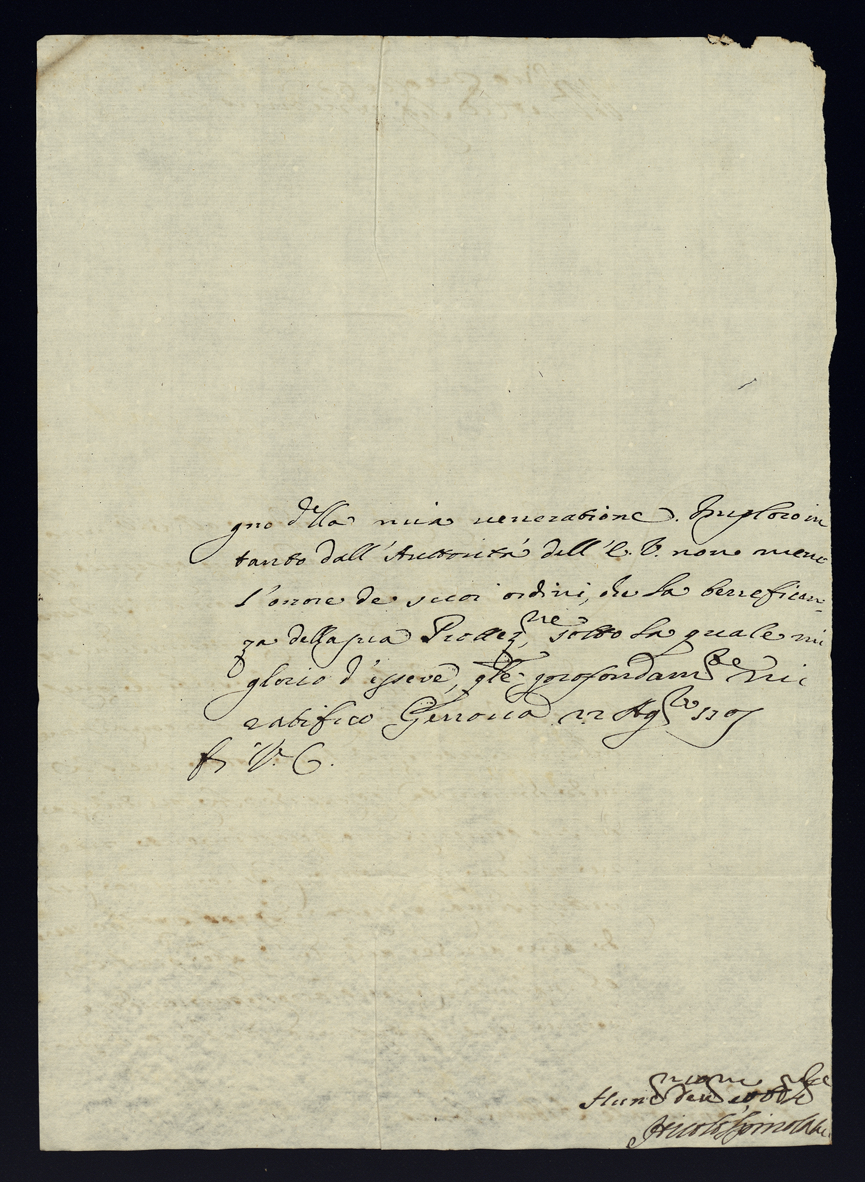 gno della mia veneratione. Imploro in
tanto dall'Auttorità dell'E. V. non meno
l'onore de suoi ordini, che la beneficen-
za della sua Protez.ne, sotto la quale mi
glorio d'essere, e profondam.te mi
ratifico Genova 22 Ag.to 1707
D. V. E.
Hum.mo Dev.mo
Nicolò Spinola